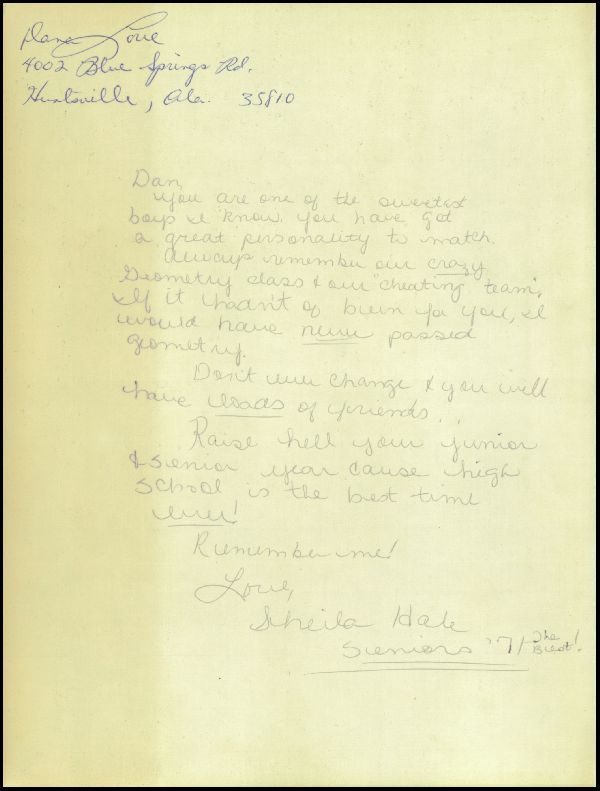 Dana Love
4002 Blue Springs Rd.
Huntsville, Ala. 35810
Dan,
You are one of the sweetest
boys I know. You have got
a great personality to match.
Always remember our crazy
Geometry class & our "cheating team".
If it hadn't of been for you, I
would have never passed
geometry.
Don't ever change & you will
have loads of friends.
Raise hell your junior
& senior year cause high
school is the best time
ever!
Remember me!
Love,
Sheila Hale
Seniors '71 The
Best!